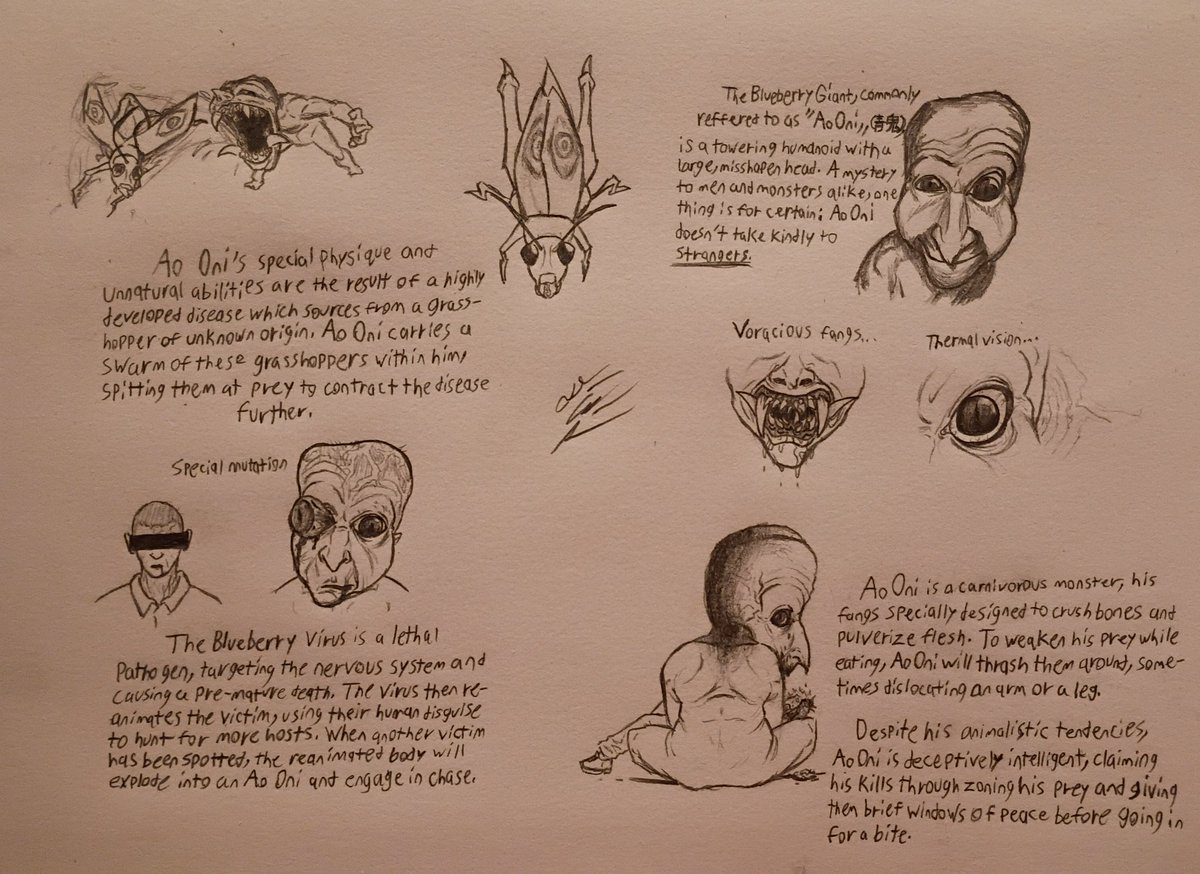 The Blueberry Giant, commonly
reffered to as "Ao Oni,, (青鬼)
is a towering humanoid with a
large, misshapen head. A mystery
to men and monsters alike, one
thing is for certain: Ao Oni
doesn't take kindly to
strangers.
Ao Oni's special physique and
unnatural abilities are the result of a highly
developed disease which sources from a grass-
hopper of unknown origin. Ao Oni carries a
swarm of these grasshoppers within him,
spitting them at prey to contract the disease
further.
Voracious fangs...
Thermal vision...
Special mutation
The Blueberry Virus is a lethal
pathogen, targeting the nervous system and
causing a pre-mature death. The virus then re-
animates the victim, using their human disguise
to hunt for more hosts. When another victim
has been spotted, the reanimated body will
explode into an Ao Oni and engage in chase.
Ao Oni is a carnivorous monster, his
fangs specially designed to crush bones and
pulverize flesh. To weaken his prey while
eating, Ao Oni will thrash them around, some-
times dislocating an arm or a leg.
Despite his animalistic tendencies,
Ao Oni is deceptively intelligent, claiming
his kills through zoning his prey and giving
then brief windows of peace before going in
for a bite.